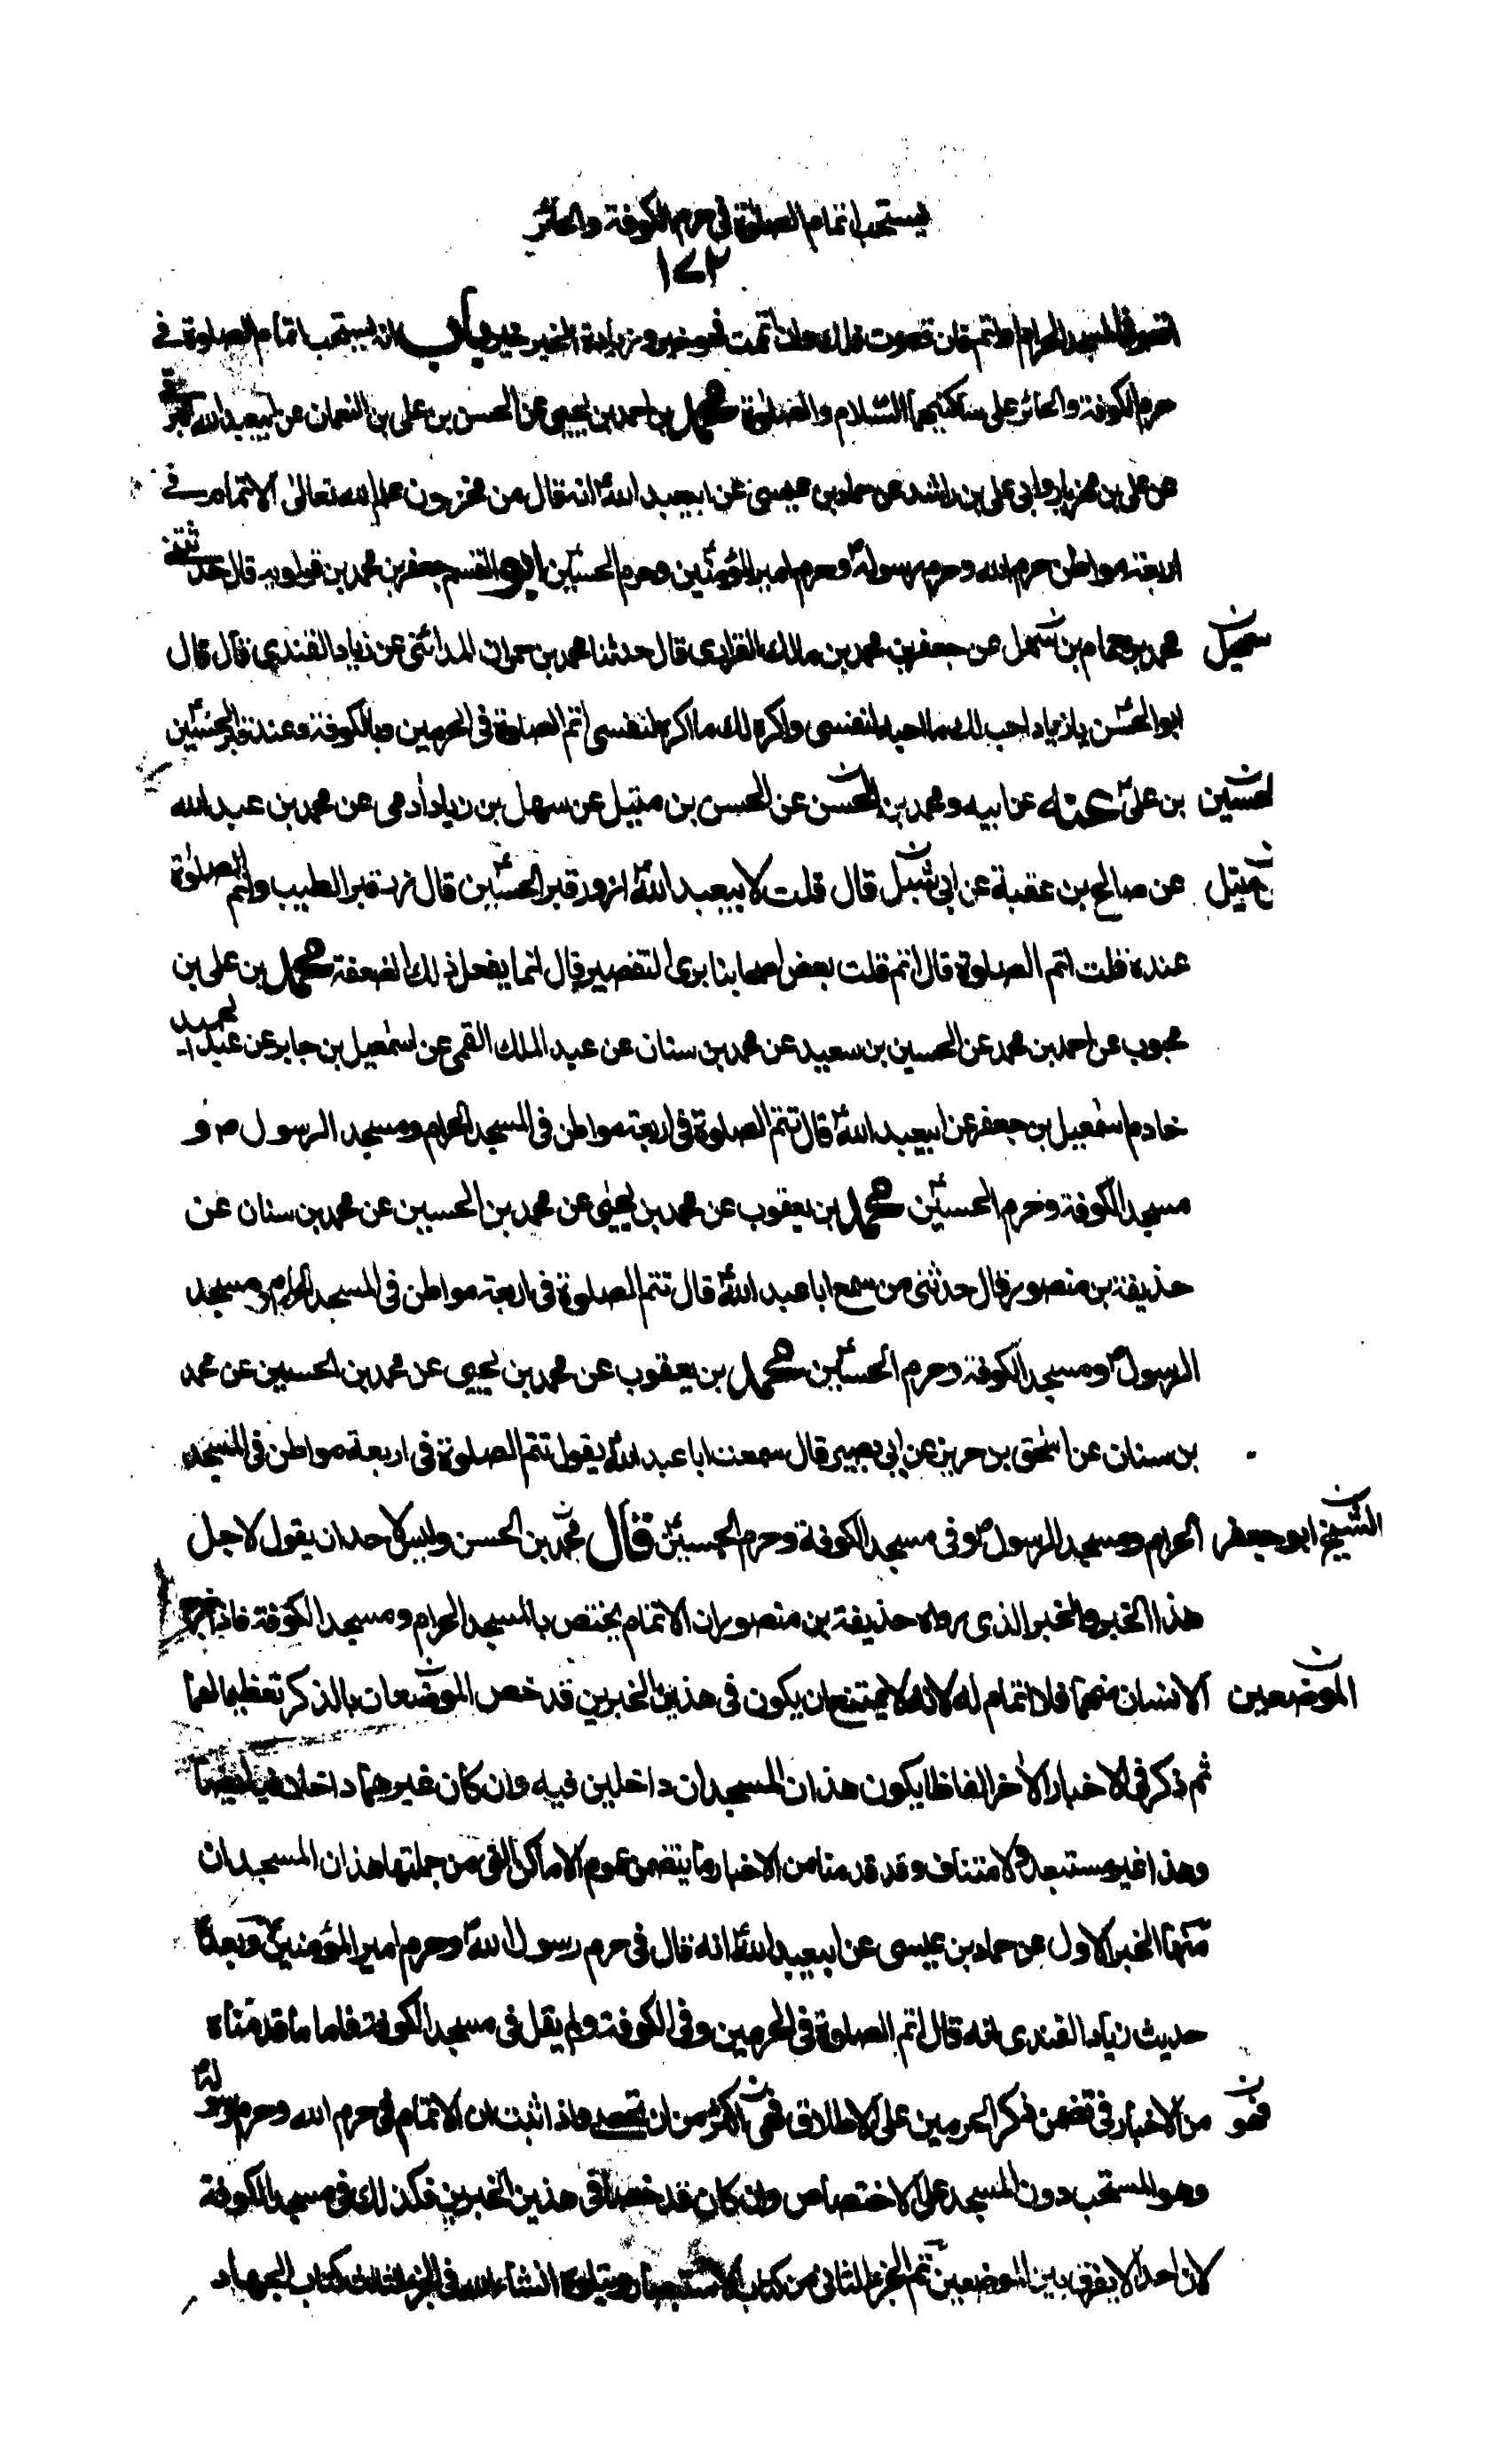 يستحب اتمام الصلوة في حرم الكوفة والحائر
١٧٢
اقصر في المسجد الحرام او اتم قال ان قصرت فذلك وان اتممت فهو خير وزيادة الخير خير باب انه يستحب اتمام الصلوة في
حرم الكوفة والحائر على ساكنيهما السلام والصلوة محمد بن احمد بن يحيى عن الحسن بن علي بن النعمان عن ابيعبد الله البرقي
عن علي بن مهزيار وابي علي بن راشد عن حماد بن عيسى عن ابيعبد اللهؑ انه قال من مخزون علم الله تعالى الاتمام في
اربعة مواطن حرم الله وحرم رسولهؐ وحرم امير المؤمنينؑ وحرم الحسينؑ ابو القسم جعفر بن محمد بن قولويه قال حدثني
محمد بن همام بن سهل عن جعفر بن محمد بن مالك الفزاري قال حدثنا محمد بن حمران المدائني عن زياد القندي قال قال
سهيل ن
ابو الحسنؑ يا زياد احب لك ما احبه لنفسي واكره لك ما اكره لنفسي اتم الصلوة في الحرمين وبالكوفة وعند قبر الحسينؑ
بن عليؑ عنه عن ابيه ومحمد بن الحسن عن الحسن بن متيل عن سهل بن زياد ادمى عن محمد بن عبد الله
الحسين ن
عن صالح بن عقبة عن ابي شبل قال قلت لابيعبد اللهؑ ازور قبر الحسينؑ قال زر قبر الطيب واتم الصلوة
متيل
عنده قلت اتم الصلوة قال اتم قلت بعض اصحابنا يرى التقصير قال انما يفعل ذلك الضعفة محمد بن علي بن
محبوب عن احمد بن محمد عن الحسين بن سعيد عن محمد بن سنان عن عبد الملك القمي عن اسمعيل بن جابر عن عبد الحميد
خادم اسمعيل بن جعفر عن ابيعبد اللهؑ قال تتم الصلوة في اربعة مواطن في المسجد الحرام ومسجد الرسول ص و
مسجد الكوفة وحرم الحسينؑ محمد بن يعقوب عن محمد بن يحيى عن محمد بن الحسين عن محمد بن سنان عن
حذيفة بن منصور قال حدثني من سمع ابا عبد اللهؑ قال تتم الصلوة في اربعة مواطن في المسجد الحرام ومسجد
الرسولؐ ومسجد الكوفة وحرم الحسينؑ محمد بن يعقوب عن محمد بن يحيى عن محمد بن الحسين عن محمد
بن سنان عن اسحق بن حريز عن ابي بصير قال سمعت ابا عبد اللهؑ يقول تتم الصلوة في اربعة مواطن في المسجد
الحرام ومسجد الرسولؐ وفي مسجد الكوفة وحرم الحسينؑ قال محمد بن الحسن وليس لاحد ان يقول لاجل
الشيخ ابو جعفر ن
هذا الخبر والخبر الذي رواه حذيفة بن منصور ان الاتمام يختص بالمسجد الحرام ومسجد الكوفة فاذا خرج
الانسان منهما فلا اتمام له لانه لا يمتنع ان يكون في هذين الخبرين قد خص الموضعان بالذكر تعظيما لهما
الموضعين ن
ثم ذكر في الاخبار الاخر الفاظا يكون هذان المسجدان داخلين فيه وان كان غيرهما داخلا فيه ايضا
وهذا غير مستبعد ولا متناف وقد قدمنا من الاخبار ما يتضمن عموم الاماكن التي من جملتها هذان المسجدان
منها الخبر الاول عن حماد بن عيسى عن ابيعبد اللهؑ انه قال في حرم رسول اللهؐ وحرم امير المؤمنينؑ وبعده
حديث زياد القندي انه قال اتم الصلوة في الحرمين وفي الكوفة ولم يقل في مسجد الكوفة فاما ما قدمناه
من الاخبار في تضمن ذكر الحرمين على الاطلاق فهي اكثر من ان تحصى واذا ثبت ان الاتمام في حرم الله وحرم رسوله
فهو ن
وهو المستحب دون المسجد على الاختصاص وان كان قد خصا في هذين الخبرين فكذلك في مسجد الكوفة
لان احدا لا يفرق بين الموضعين تم الجزء الثاني من كتاب الاستبصار ويتلوه انشاء الله في الجزء الثالث كتاب الجهاد